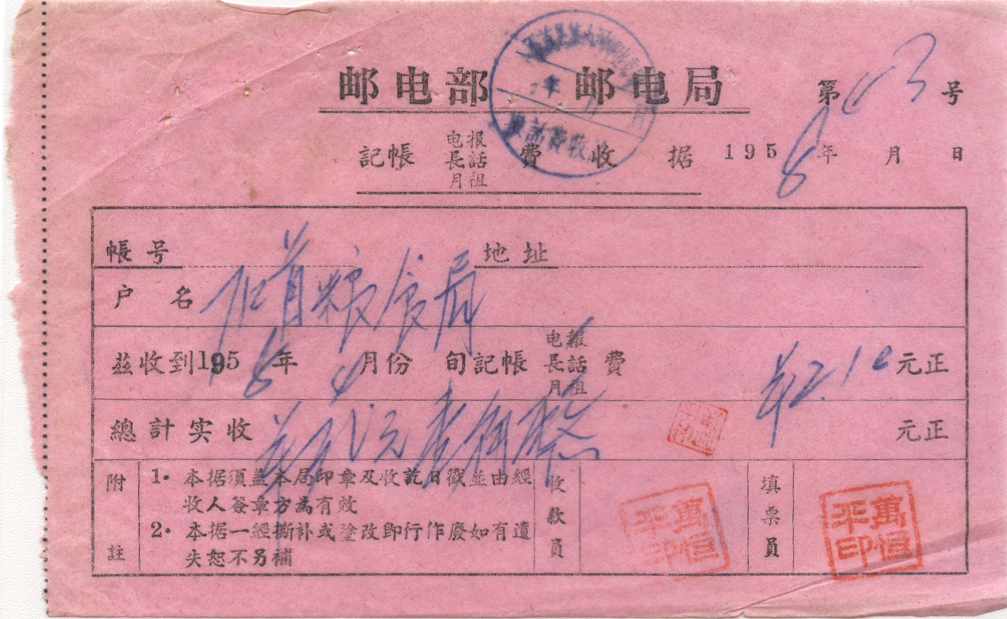 邮电部 邮电局 第 63 号
記帳 电报 長話 月租 費收据 1958年 月 日
帳号 地址
户名 粮食局
茲收到1958年4月份 旬記帳 电報 長話 月租 費 2.10 元正
總計实收 元正
附註
1· 本据須盖本局印章及收訖日戳並由經
收人簽章方為有效
2· 本据一經撕补或塗改即行作廢如有遺
失恕不另補
收款員
萬恒平印
填票員
萬恒平印